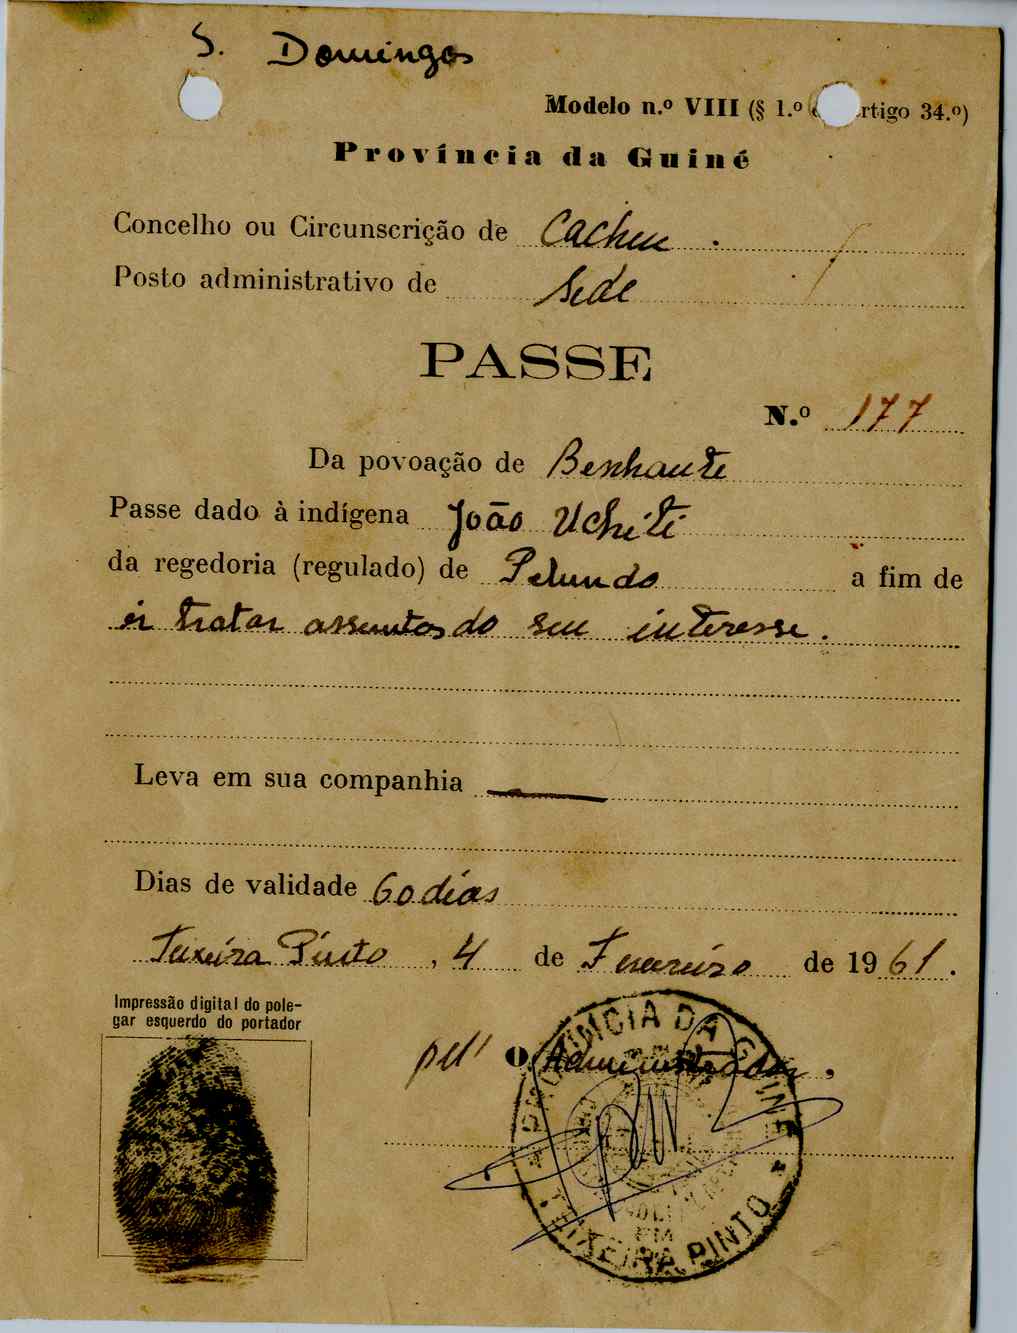 S. Domingos
Modelo n.º VIII (§ 1.º artigo 34.º)
Província da Guiné
Concelho ou Circunscrição de Cacheu.
Posto administrativo de Sede
PASSE
N.º 177
Da povoação de Benhante
Passe dado à indígena João Uchiti
da regedoria (regulado) de Pelundo a fim de
ir tratar assuntos do seu interesse.
Leva em sua companhia
Dias de validade 60 dias
Teixeira Pinto, 4 de Fevereiro de 1961.
Impressão digital do pole-
gar esquerdo do portador
pel' O Administrador,
PROVINCIA DA GUINÉ
EM
TEIXEIRA PINTO